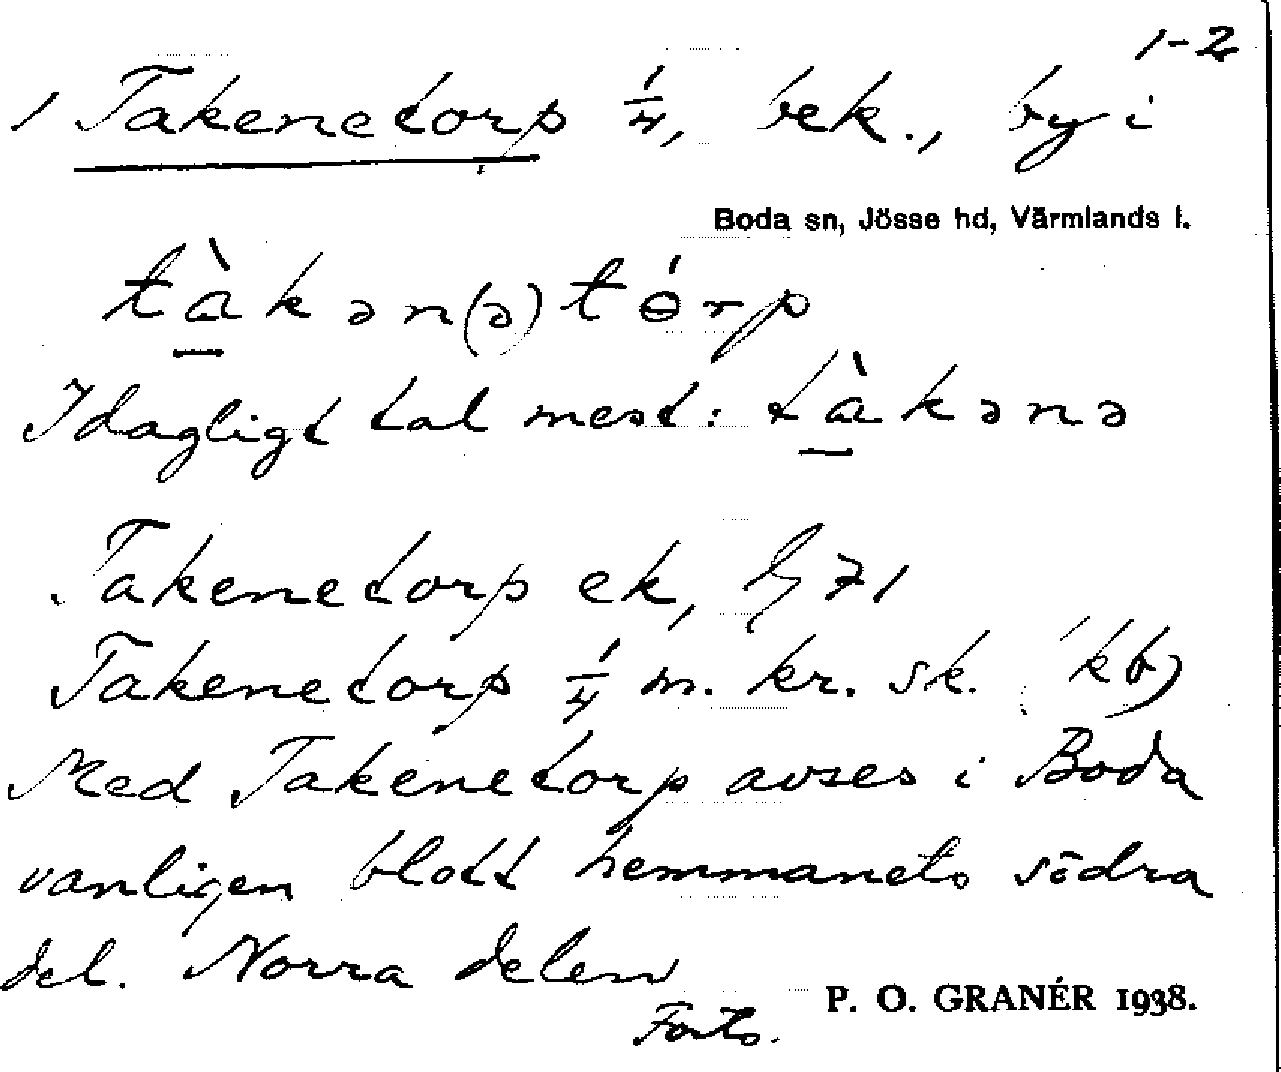 1-2
1 Takenetorp 1/4, bek., by i
Boda sn, Jösse hd, Värmlands l.
tàkən(ə)tórp
I dagligt tal mest: tàkənə
Takenetorp ek, 71
Takenetorp 1/4 m. kr. sk. (kb)
Med Takenetorp avses i Boda
vanligen blott hemmanets södra
del. Norra delen
Forts.
P. O. GRANÉR 1938.